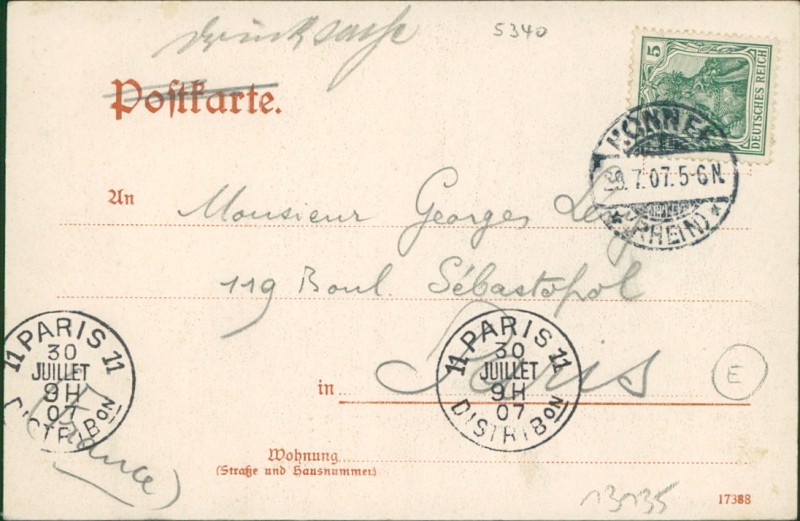 Drucksache
5340
Postkarte.
5
DEUTSCHES REICH
HONNEF
7.07.5-6N.
* (RHEIN) *
An Monsieur Georges
119 Boul. Sébastopol
in Paris
PARIS
11 11
30
JUILLET
9H
07
DISTRIBON
(France)
PARIS
11 11
30
JUILLET
9H
07
DISTRIBON
E
Wohnung
(Straße und Hausnummer)
13135
17388